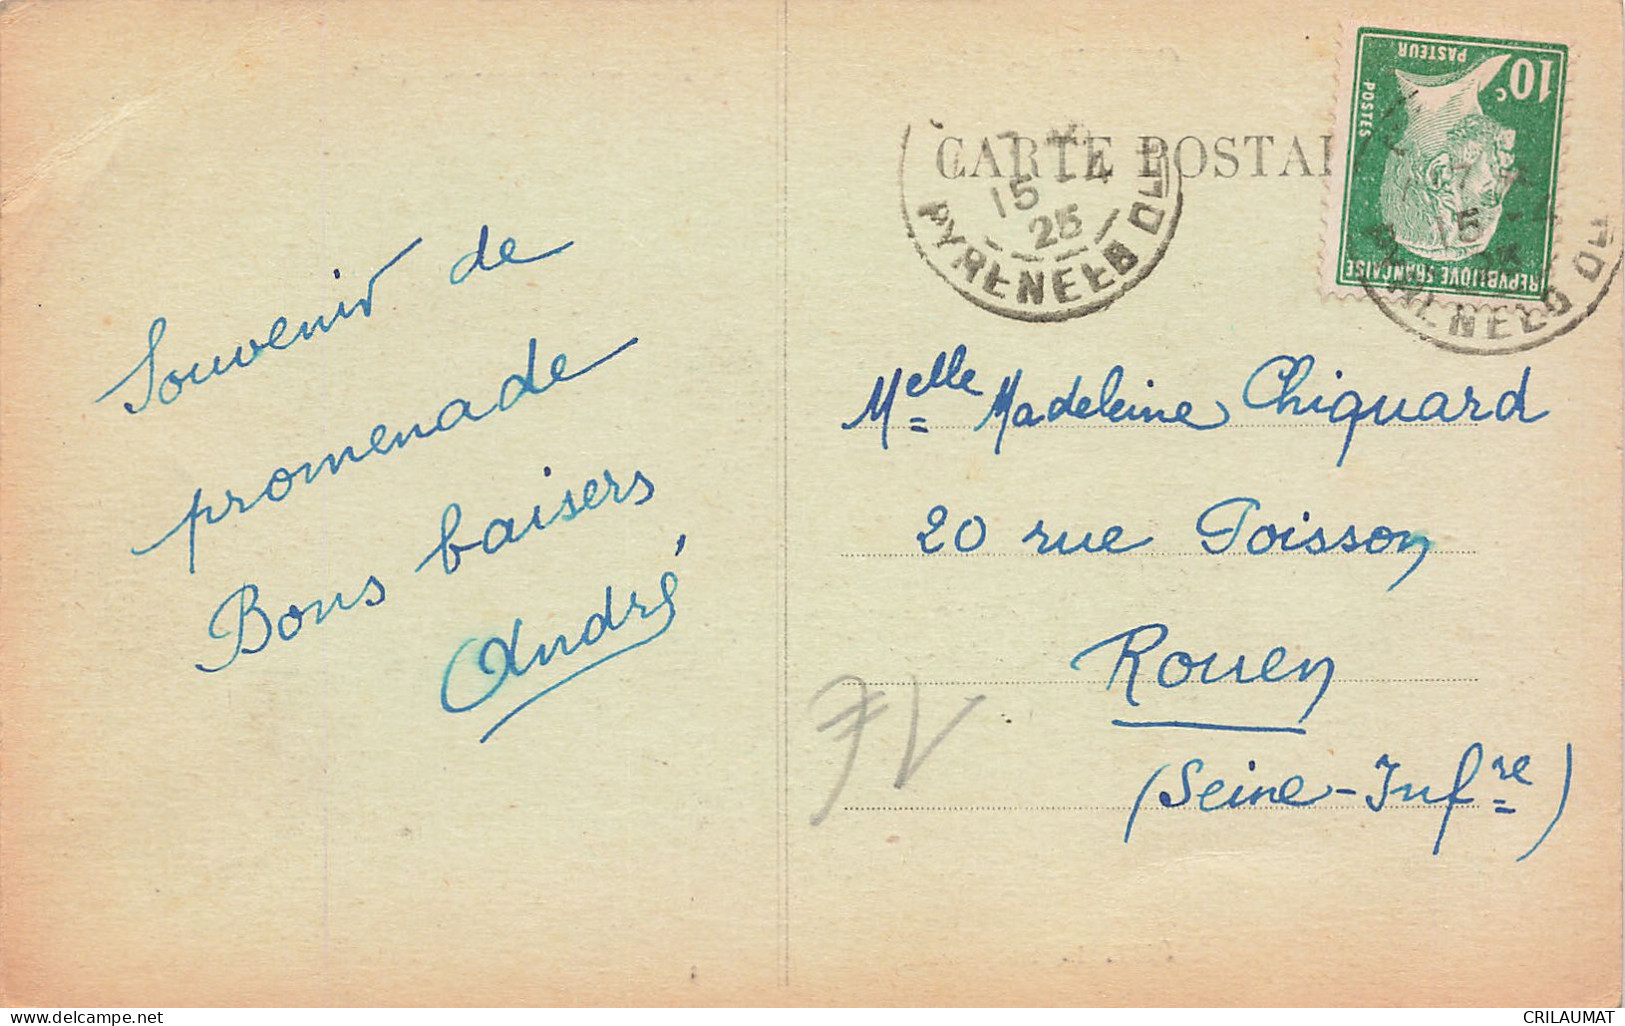 CARTE POSTAL
10c
PASTEUR
POSTES
REPVBLIQVE FRANÇAISE
15 - 4
25
PYRENEES
Souvenir de
promenade
Bons baisers
André
Melle Madeleine Chiquard
20 rue Poisson
Rouen
(Seine-Infre)
www.delcampe.net
CRILAUMAT